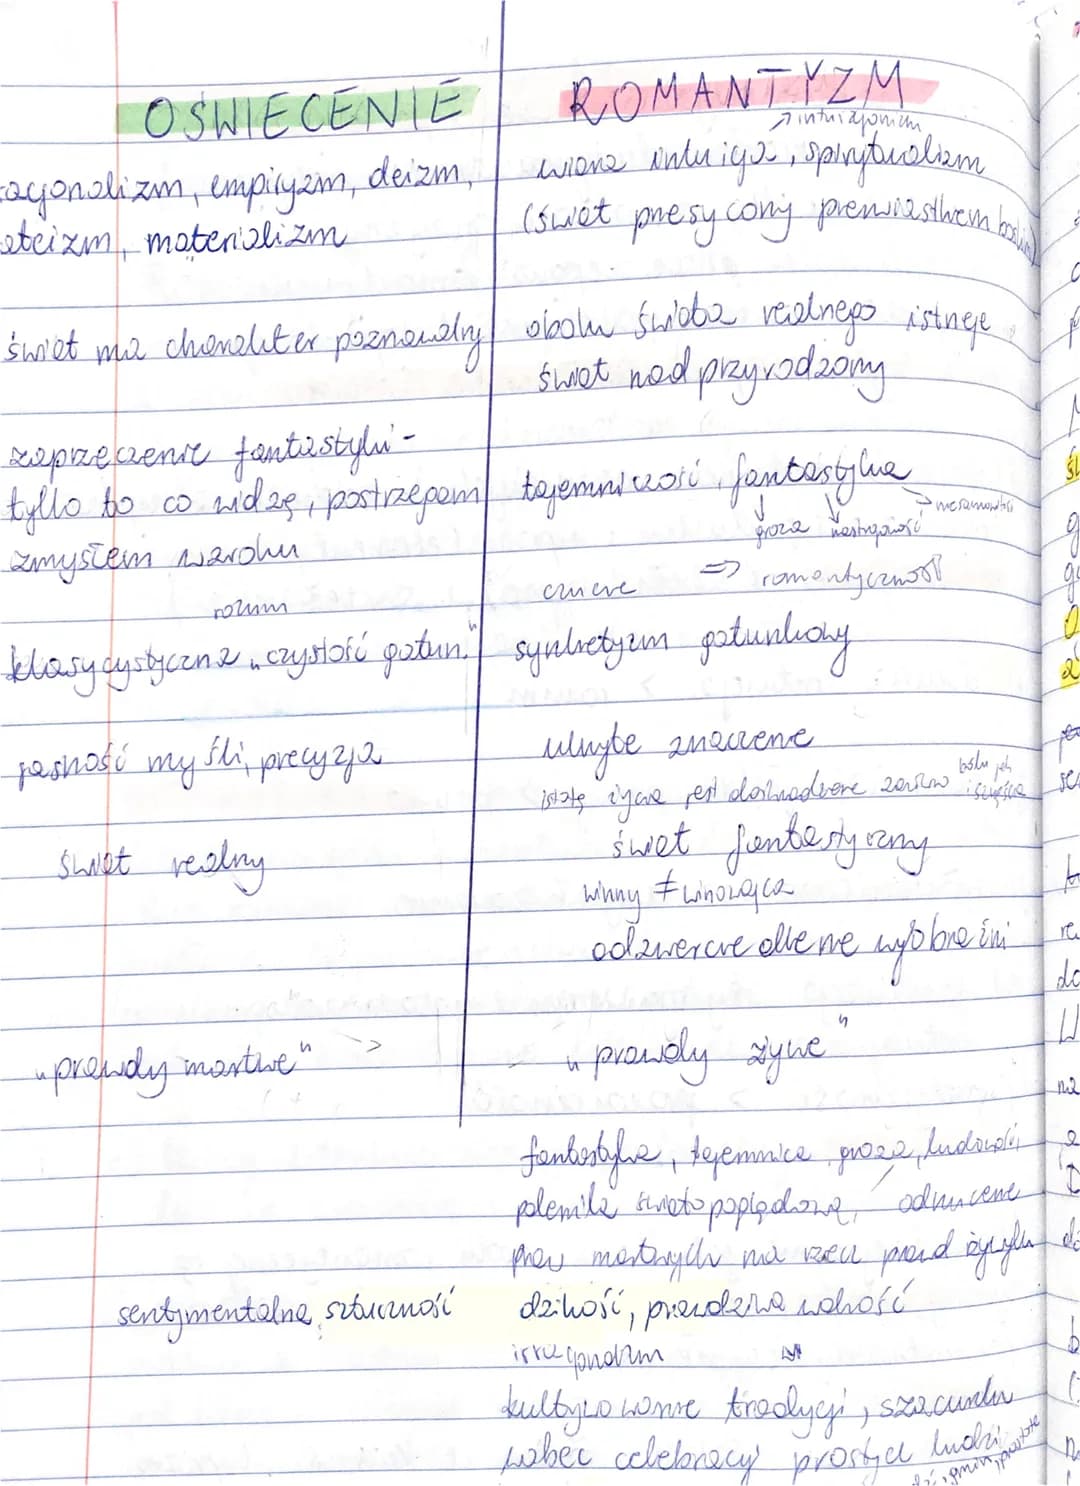 OŚWIECENIE
racjonalizm, empiryzm, deizm,
ateizm, materializm
świat ma charakter poznawalny
zaprzeczenie fantastyki -
tylko to co widzę, postrzegam
zmysłem wzroku
rozum
klasycystyczna „czystość gatun."
jasność myśli, precyzja
świat realny
„prawdy martwe"
sentymentalna sztuczność
ROMANTYZM
wiara intuicja, spirytualizm
(świat przesycony pierwiastkiem boskim)
obok świata realnego istnieje
świat nadprzyrodzony
tajemniczość, fantastyka
→ niesamowitość
groza nastrojowość
czucie => romantyczność
synkretyzm gatunkowy
ukryte znaczenie
istotą życia jest doświadczenie
świat fantastyczny
winny ≠ winowajca
odzwierciedlenie wyobraźni
„prawdy żywe"
fantastyka, tajemnica, groza, ludowość,
polemika światopoglądowa, odrzucenie
praw martwych na rzecz prawd żywych
dzikość, prawdziwa wolność
irracjonalizm
kultywowanie tradycji, szacunku
wobec celebracji prostych ludzi
gmin, prostota